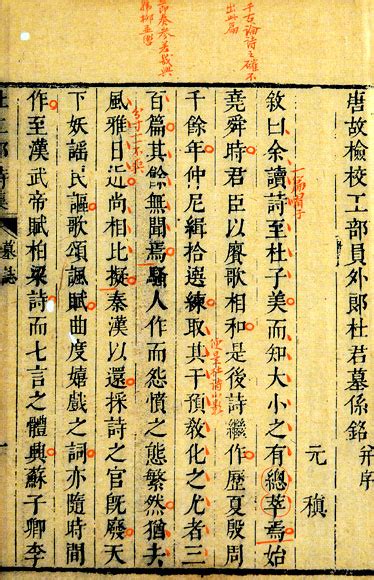 千古論詩之確不
出此篇
唐故檢校工部員外郎杜君墓係銘 并序
元稹
敘曰余讀詩至杜子美而知大小之有總萃焉始
堯舜時君臣以賡歌相和是後詩繼作歷夏殷周
千餘年仲尼緝拾選練取其干預敎化之尤者三
百篇其餘無聞焉騷人作而怨憤之態繁然猶去
風雅日近尚相比擬秦漢以還採詩之官旣廢天
下妖謠民謳歌頌諷賦曲度嬉戲之詞亦隨時間
作至漢武帝賦柏梁詩而七言之體興蘇子卿李
墓誌
一